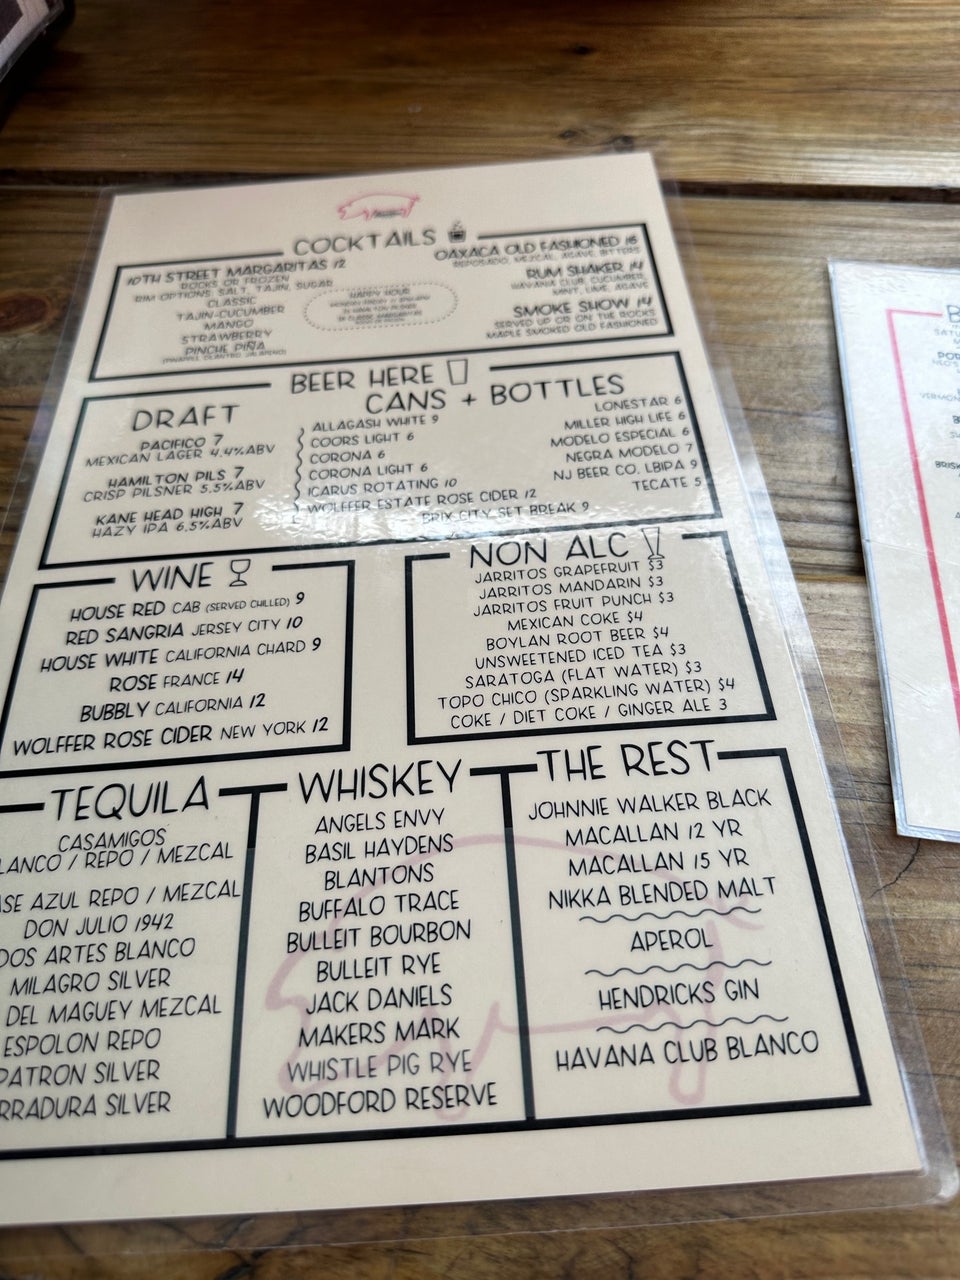 COCKTAILS
10TH STREET MARGARITAS 12
ROCKS OR FROZEN
RIM OPTIONS: SALT, TAJIN, SUGAR
CLASSIC
TAJIN-CUCUMBER
MANGO
STRAWBERRY
PINCHE PIÑA
(PINAPPLE, CILANTRO, JALAPENO)
HAPPY HOUR
OAXACA OLD FASHIONED 16
REPOSADO, MEZCAL, AGAVE, BITTERS
RUM SHAKER 14
HAVANA CLUB, CUCUMBER,
MINT, LIME, AGAVE
SMOKE SHOW 14
SERVED UP OR ON THE ROCKS
MAPLE SMOKED OLD FASHIONED
BEER HERE
DRAFT
PACIFICO 7
MEXICAN LAGER 4.4%ABV
HAMILTON PILS 7
CRISP PILSNER 5.5%ABV
KANE HEAD HIGH 7
HAZY IPA 6.5%ABV
CANS + BOTTLES
ALLAGASH WHITE 9
COORS LIGHT 6
CORONA 6
CORONA LIGHT 6
ICARUS ROTATING 10
WOLFFER ESTATE ROSE CIDER 12
LONESTAR 6
MILLER HIGH LIFE 6
MODELO ESPECIAL 6
NEGRA MODELO 7
NJ BEER CO. LBIPA 9
TECATE 5
BRIX CITY SET BREAK 9
WINE
HOUSE RED CAB (SERVED CHILLED) 9
RED SANGRIA JERSEY CITY 10
HOUSE WHITE CALIFORNIA CHARD 9
ROSE FRANCE 14
BUBBLY CALIFORNIA 12
WOLFFER ROSE CIDER NEW YORK 12
NON ALC
JARRITOS GRAPEFRUIT $3
JARRITOS MANDARIN $3
JARRITOS FRUIT PUNCH $3
MEXICAN COKE $4
BOYLAN ROOT BEER $4
UNSWEETENED ICED TEA $3
SARATOGA (FLAT WATER) $3
TOPO CHICO (SPARKLING WATER) $4
COKE / DIET COKE / GINGER ALE 3
TEQUILA
CASAMIGOS
LANCO / REPO / MEZCAL
ASE AZUL REPO / MEZCAL
DON JULIO 1942
DOS ARTES BLANCO
MILAGRO SILVER
DEL MAGUEY MEZCAL
ESPOLON REPO
PATRON SILVER
RRADURA SILVER
WHISKEY
ANGELS ENVY
BASIL HAYDENS
BLANTONS
BUFFALO TRACE
BULLEIT BOURBON
BULLEIT RYE
JACK DANIELS
MAKERS MARK
WHISTLE PIG RYE
WOODFORD RESERVE
THE REST
JOHNNIE WALKER BLACK
MACALLAN 12 YR
MACALLAN 15 YR
NIKKA BLENDED MALT
APEROL
HENDRICKS GIN
HAVANA CLUB BLANCO